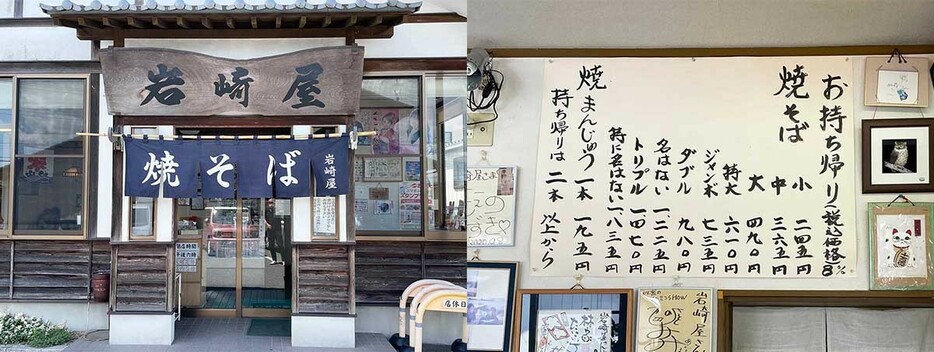 岩崎屋
焼そば
岩崎屋
店休日
お持ち帰り(税込価格8%)
焼そば
小 二四五円
中 三六五円
大 四九〇円
特大 六一〇円
ジャンボ 七三五円
ダブル 九八〇円
名はない 一二二五円
トリプル 一四七〇円
特に名はない 一八三五円
焼まんじゅう 一本 一九五円
持ち帰りは 二本 以上から
岩崎屋さん